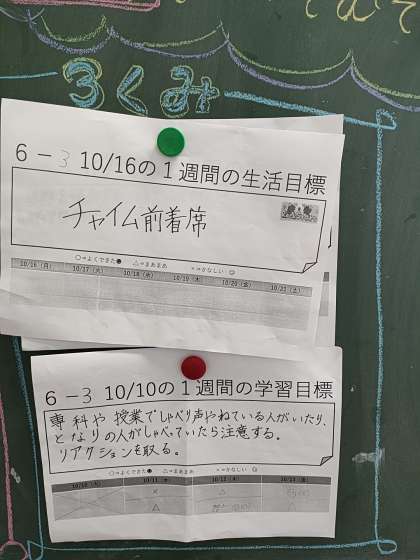 3くみ
6－3 10/16の1週間の生活目標
チャイム前着席
○⇒よくできた● △⇒まあまあ ×⇒かなしい
10/16(月) 10/17(火) 10/18(水) 10/19(木) 10/20(金) 10/21(土)
6－3 10/10の1週間の学習目標
専科や授業でしゃべり声やねている人がいたり、
となりの人がしゃべっていたら注意する。
リアクションを取る。
○⇒よくできた● △⇒まあまあ ×⇒かなしい
× △
△